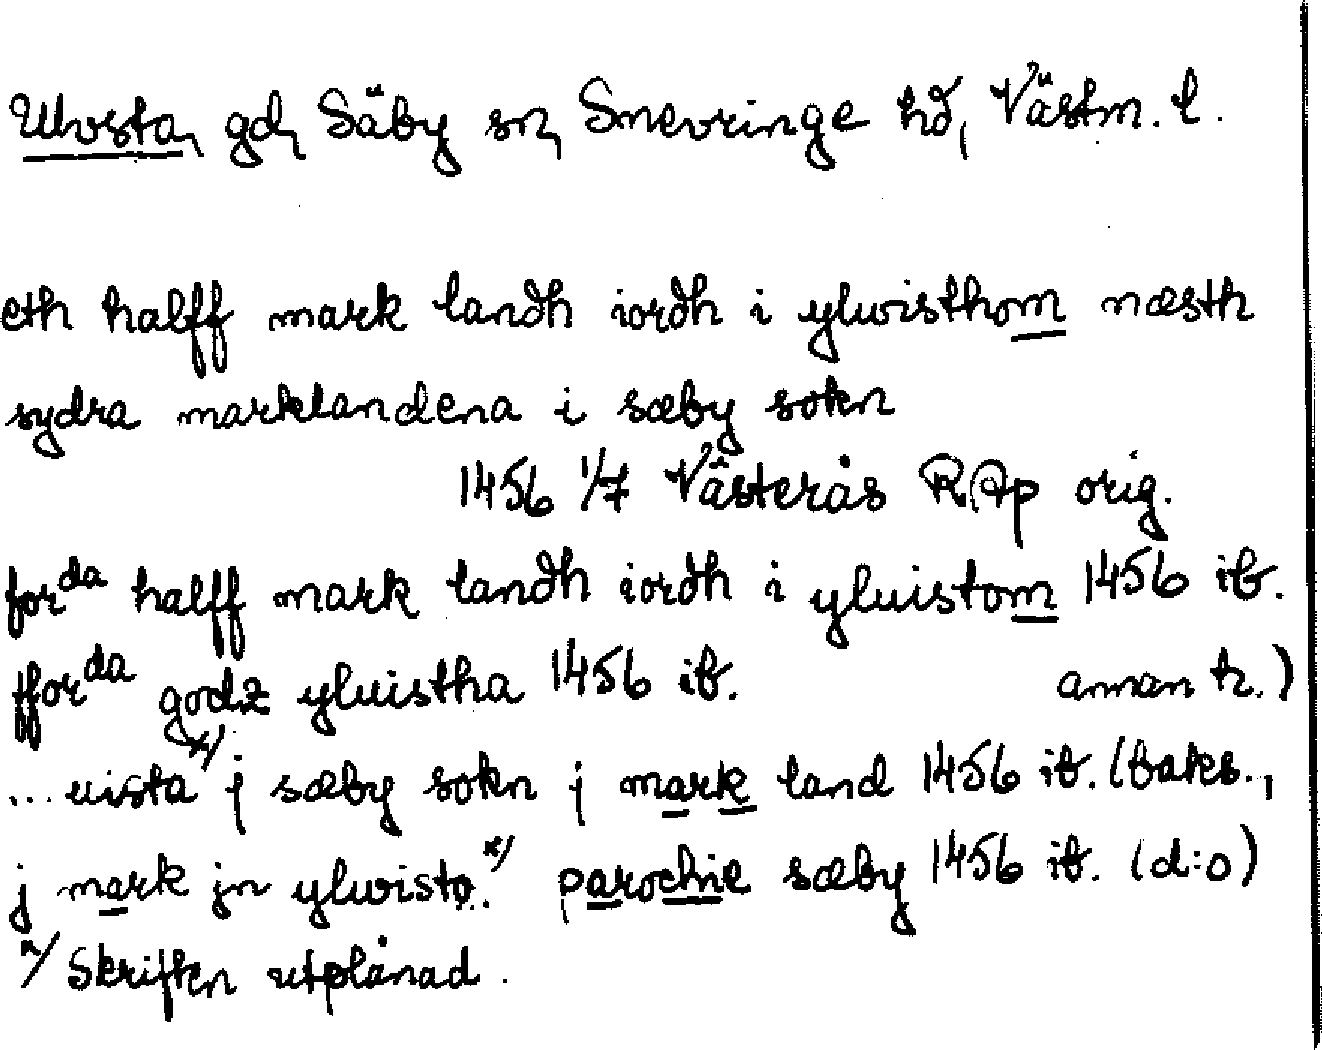 Ulvsta, gd, Säby sn, Snevringe hd, Västm. l.
eth halff mark landh iordh i ylwisthom næsth
sydra marklandena i sæby sokn
1456 1/7 Västerås RAp orig.
forda halff mark landh iordh i yluistom 1456 ib.
fforda godz yluistha 1456 ib. annan h.)
... uista x/ j sæby sokn j mark land 1456 ib. (baks.,
j mark jn ylwista.. x/ parochie sæby 1456 ib. (d:o)
x/ Skriften utplånad.